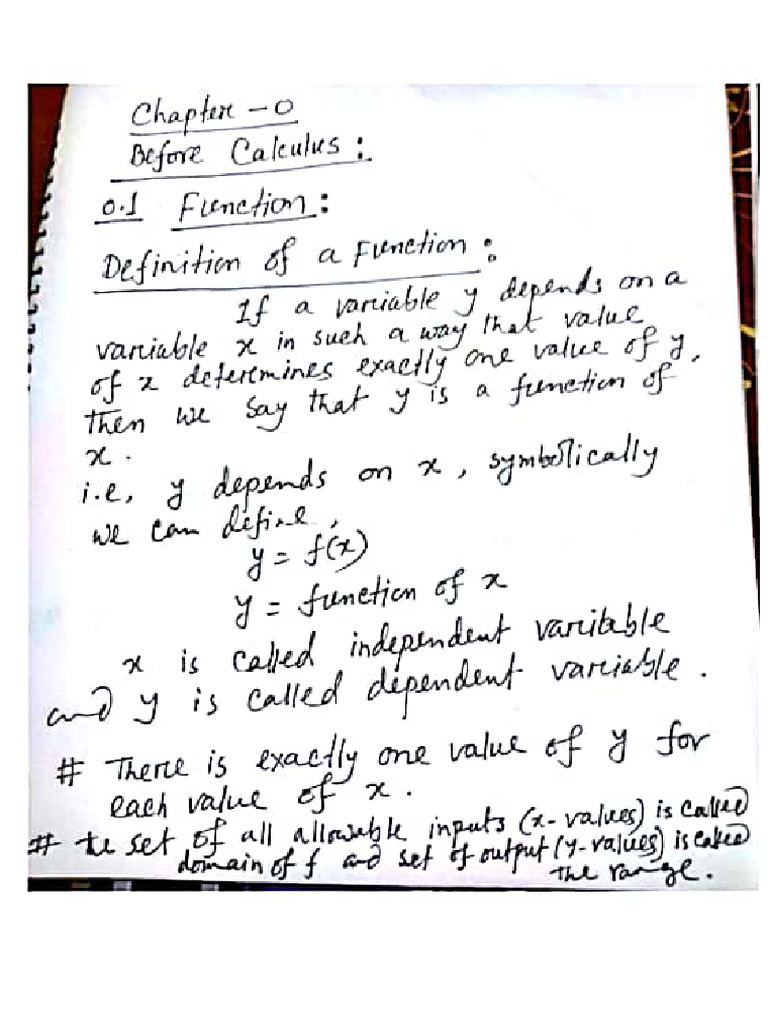 Chapter - 0
Before Calculus:
0.1 Function:
Definition of a Function:
If a variable y depends on a
variable x in such a way that value
of x determines exactly one value of y,
then we say that y is a function of
x.
i.e, y depends on x, symbolically
we can define,
y = f(x)
y = function of x
x is called independent variable
and y is called dependent variable.
# There is exactly one value of y for
each value of x.
# the set of all allowable inputs (x-values) is called
domain of f and set of output (y-values) is called
the range.